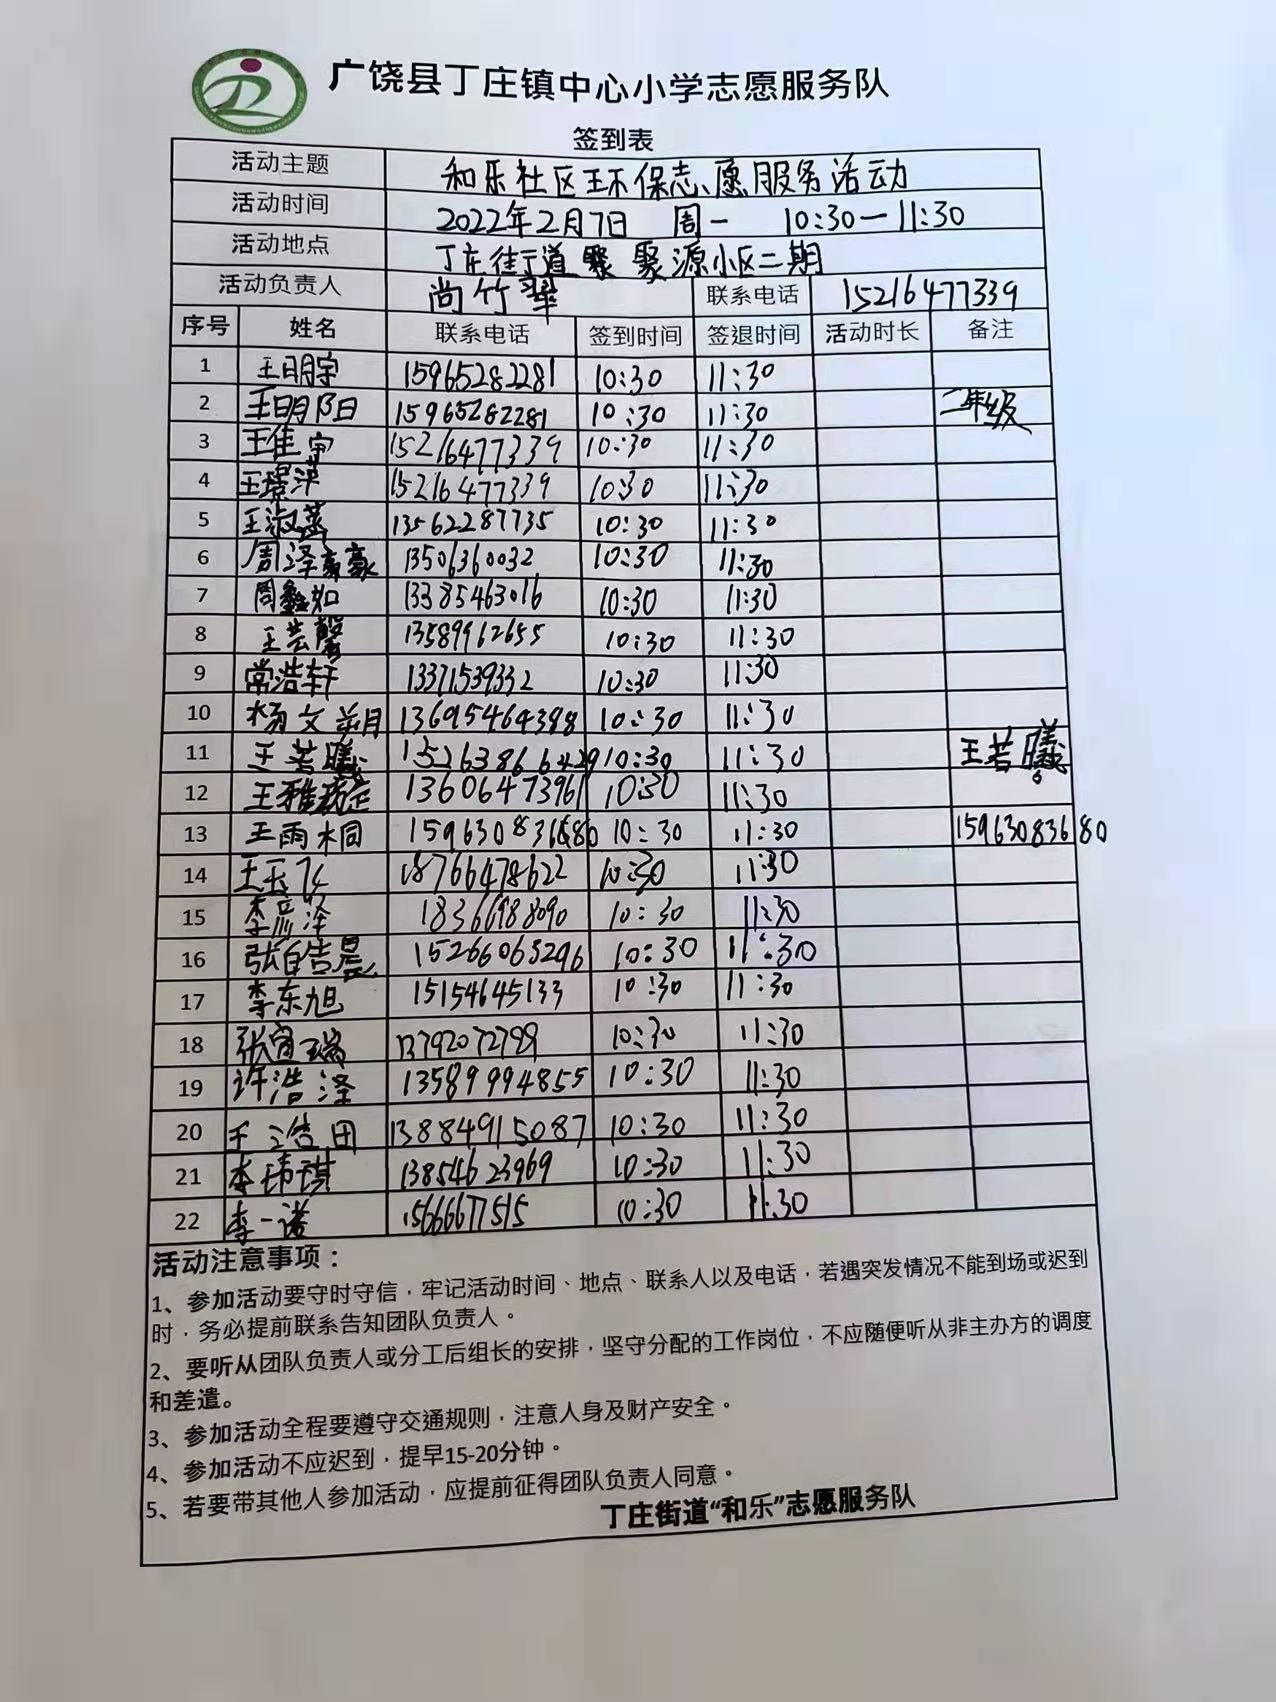 广饶县丁庄镇中心小学志愿服务队
签到表
活动主题 和乐社区环保志愿服务活动
活动时间 2022年2月7日 周一 10:30—11:30
活动地点 丁庄街道 聚源小区二期
活动负责人 尚竹翠 联系电话 15216477339
序号 姓名 联系电话 签到时间 签退时间 活动时长 备注
1 王明宇 15965282281 10:30 11:30
2 王明阳 15965282281 10:30 11:30 二年级
3 王佳宁 15216477339 10:30 11:30
4 王璟萍 15216477339 10:30 11:30
5 王淑菡 13562287735 10:30 11:30
6 周泽豪 13506360032 10:30 11:30
7 周鑫如 13385463016 10:30 11:30
8 王芸馨 13589962655 10:30 11:30
9 常浩轩 13371539332 10:30 11:30
10 杨文朔 13695464398 10:30 11:30
11 王若曦 15263866429 10:30 11:30 王若曦
12 王雅琁 13606473961 10:30 11:30
13 王雨桐 15963083680 10:30 11:30 15963083680
14 王玉飞 18766478622 10:30 11:30
15 李彦泽 18366988090 10:30 11:30
16 张皓晨 15266063296 10:30 11:30
17 李东旭 15154645133 10:30 11:30
18 张宜瑞 13792072799 10:30 11:30
19 许浩泽 13589994855 10:30 11:30
20 王浩田 13884915087 10:30 11:30
21 李玮琪 13854623969 10:30 11:30
22 李一诺 15666677515 10:30 11:30
活动注意事项：
1、参加活动要守时守信，牢记活动时间、地点、联系人以及电话，若遇突发情况不能到场或迟到
时，务必提前联系告知团队负责人。
2、要听从团队负责人或分工后组长的安排，坚守分配的工作岗位，不应随便听从非主办方的调度
和差遣。
3、参加活动全程要遵守交通规则，注意人身及财产安全。
4、参加活动不应迟到，提早15-20分钟。
5、若要带其他人参加活动，应提前征得团队负责人同意。
丁庄街道“和乐”志愿服务队